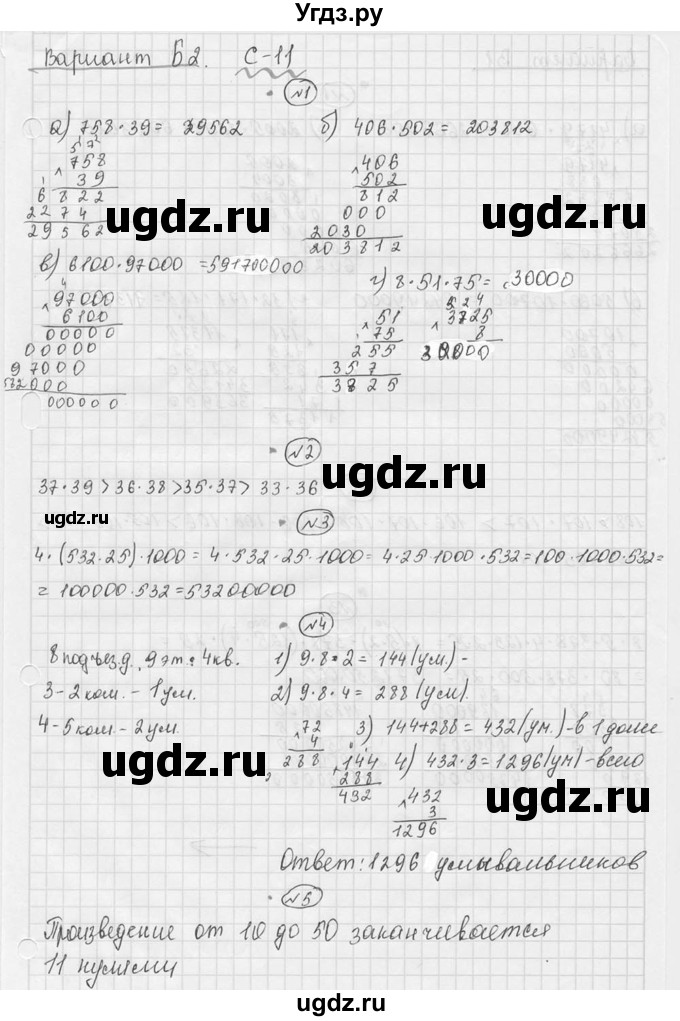 Угдз.ру
Вариант Б2. С-11
№1
а) 758·39= 29562 б) 406·502= 203812
5 7
758
39
6 8 2 2
2 2 7 4
2 9 5 6 2
406
502
8 1 2
0 0 0
2 0 3 0
2 0 3 8 1 2
в) 6100·97000 =591700000
4
97000
6100
00000
00000
97000
582000
000000
г) 8·51·75= 30000
51
75
2 5 5
3 5 7
3 8 2 5
5 2 4
3725
8
30000
ugdz.ru
ugdz.ru
№2
37·39>36·38>35·37> 33·36
ugdz.ru
ugdz.ru
№3
4·(532·25)·1000= 4·532·25·1000= 4·25·1000·532=100·1000·532=
= 100000·532=53200000
№4
8 подъезд, 9 эт: 4кв. 1) 9·8·2= 144(ум.)-
3-2 ком. - 1 ум. 2) 9·8·4= 288(ум).
4-5 ком. - 2 ум
72
4
288
3) 144+288= 432(ум.)-в 1 доме
144
288
432
4) 432·3=1296(ум)-всего
432
3
1296
ugdz.ru
ugdz.ru
Ответ: 1296 умывальников
№5
Произведение от 10 до 50 заканчивается
11 нулями
ugdz.ru
ugdz.ru